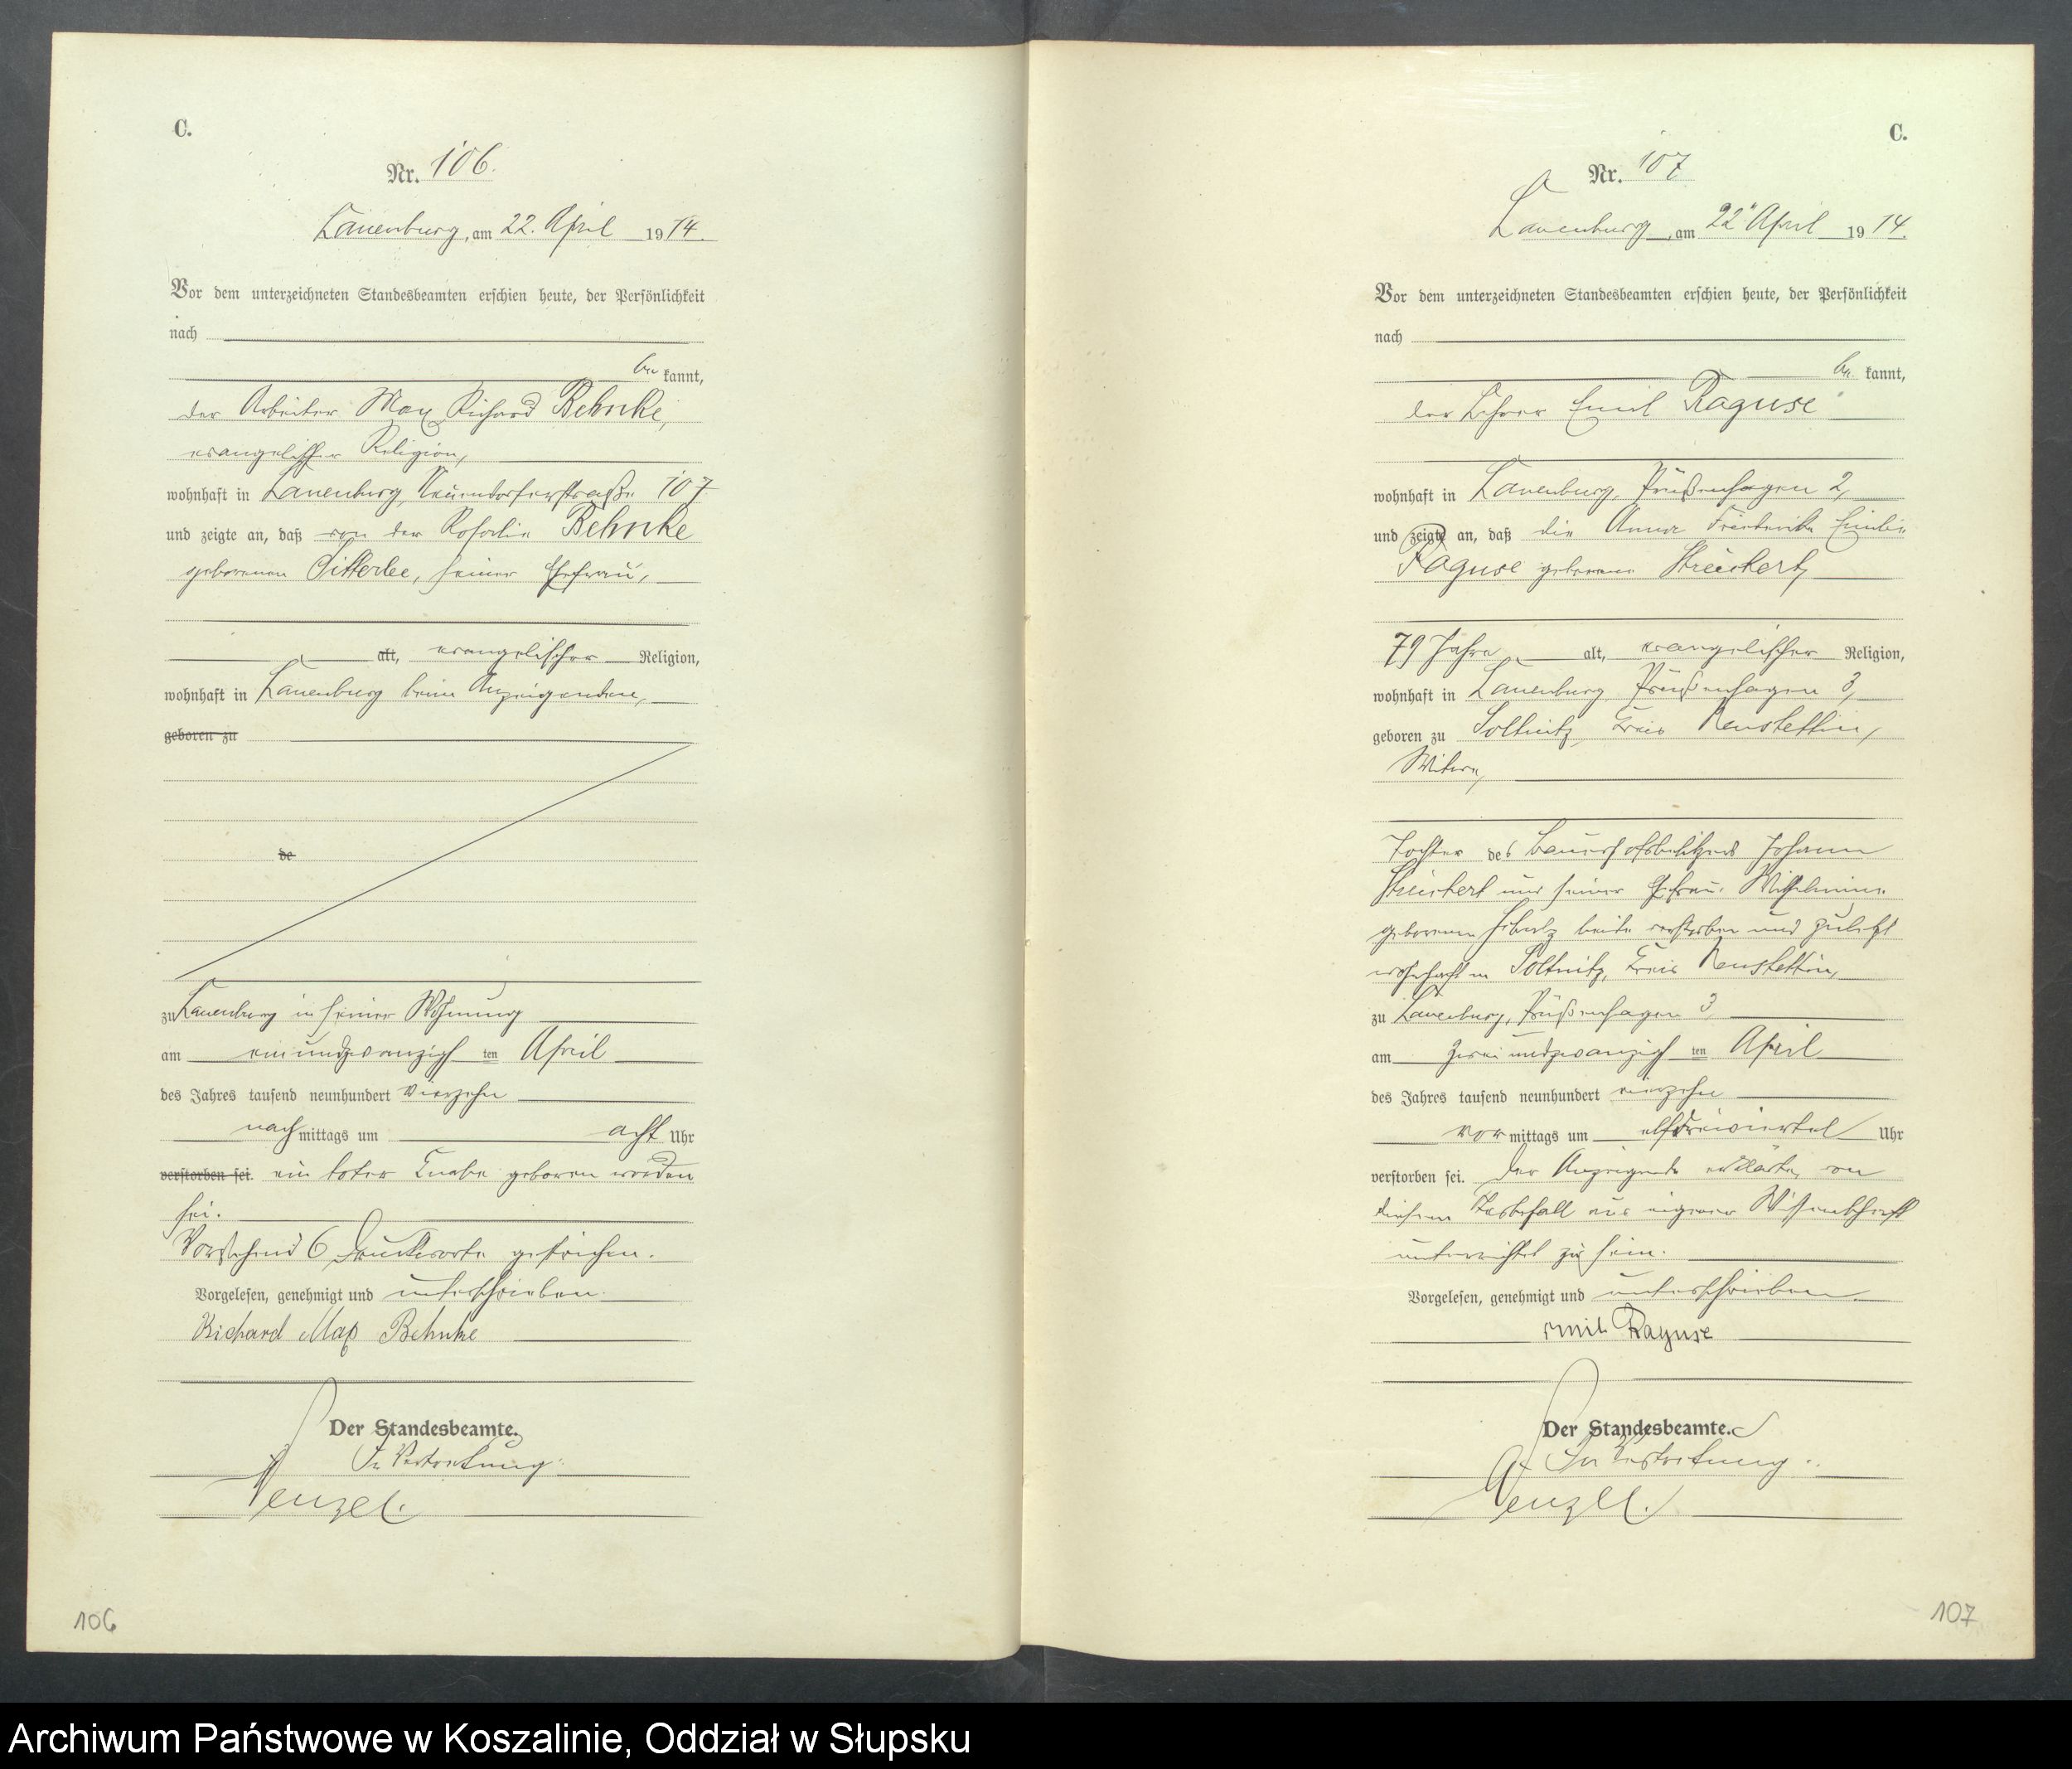 C.
Nr. 106.
Lauenburg, am 22. April 1914.
Vor dem unterzeichneten Standesbeamten erschien heute, der Persönlichkeit
nach
be kannt,
der Arbeiter Max Richard Behnke,
evangelischer Religion,
wohnhaft in Lauenburg, Neuendorferstraße 107
und zeigte an, daß von der Behnke
geborenen seiner Ehefrau,
alt, evangelischer Religion,
wohnhaft in Lauenburg beim Anzeigenden,
geboren zu
de
zu Lauenburg in seiner Wohnung
am einundzwanzigsten April
des Jahres tausend neunhundert vierzehn
nachmittags um acht Uhr
verstorben sei. ein toter Knabe geboren worden
sei.
Vorstehend 6 Druckworte gestrichen.
Vorgelesen, genehmigt und unterschrieben.
Richard Max Behnke
Der Standesbeamte.
In Vertretung.
Wenzel.
106
C.
Nr. 107
Lauenburg, am 22. April 1914.
Vor dem unterzeichneten Standesbeamten erschien heute, der Persönlichkeit
nach
be kannt,
der Lehrer Emil Raguse
wohnhaft in Lauenburg, Preußenhagen 2,
und zeigte an, daß die Anna Friederike Emilie
Raguse geborene Streichert,
79 Jahre alt, evangelischer Religion,
wohnhaft in Lauenburg, Preußenhagen 3,
geboren zu Soltnitz, Kreis Neustettin,
Witwe,
Tochter des Bauerhofsbesitzers Johann
Streichert und seiner Ehefrau Wilhelmine
geborenen Schulz beide verstorben und zuletzt
wohnhaft in Soltnitz, Kreis Neustettin,
zu Lauenburg, Preußenhagen 3,
am zweiundzwanzigsten April
des Jahres tausend neunhundert vierzehn
vormittags um elfdreiviertel Uhr
verstorben sei. Der Anzeigende erklärte, von
diesem Todesfall aus eigener Wissenschaft
unterrichtet zu sein.
Vorgelesen, genehmigt und unterschrieben
Emil Raguse
Der Standesbeamte.
In Vertretung.
Wenzel.
107
Archiwum Państwowe w Koszalinie, Oddział w Słupsku